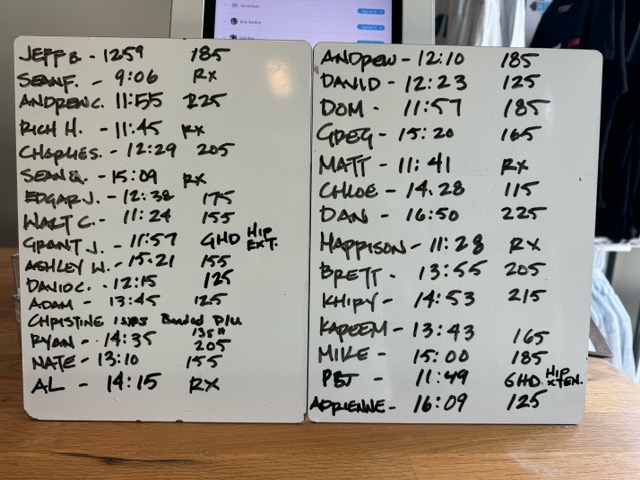 JEFF B. - 1259 185
SEAN F. - 9:06 RX
ANDREW C. 11:55 225
RICH H. - 11:45 RX
CHARLIE S. - 12:29 205
SEAN G. - 15:09 RX
EDGAR J. - 12:38 175
WALT C. - 11:24 155
GRANT J. - 11:57 GHD HIP EXT.
ASHLEY W. - 15:21 155
DAVID C. - 12:15 125
ADAM - 13:45 125
CHRISTINE Banded P/U 135#
RYAN - 14:35 205
NATE - 13:10 155
AL - 14:15 RX
ANDREW - 12:10 185
DAVID - 12:23 125
DOM - 11:57 185
GREG - 15:20 165
MATT - 11:41 RX
CHLOE - 14:28 115
DAN - 16:50 225
HARRISON - 11:28 RX
BRETT - 13:55 205
KHIRY - 14:53 215
KAREEM - 13:43 165
MIKE - 15:00 185
PBJ - 11:49 GHD HIP XTEN.
ADRIENNE - 16:09 125